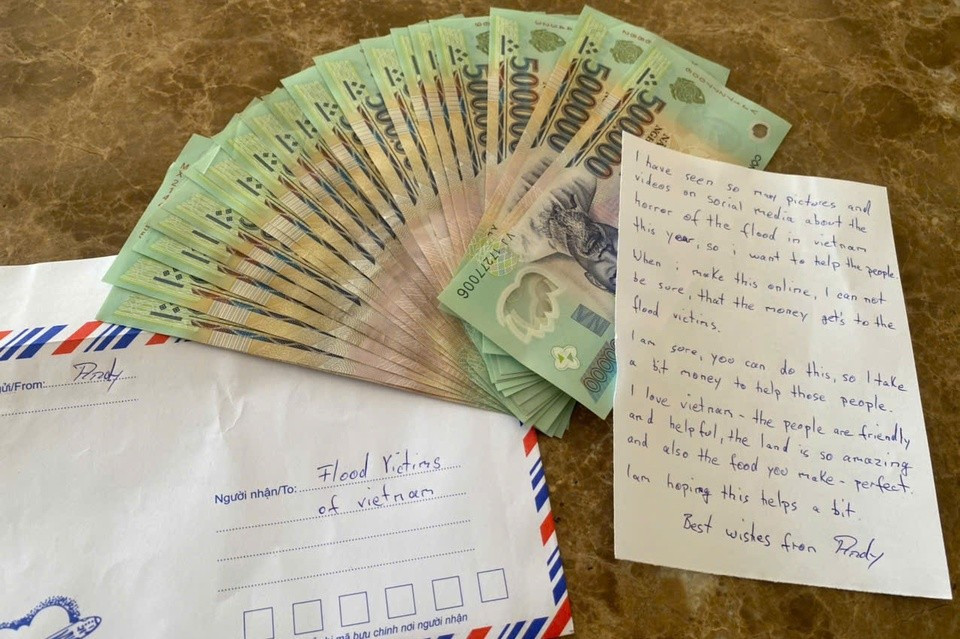 500000
500000
500000
500000
500000
I have seen so many pictures and
videos on social media about the
horror of the flood in vietnam
this year, so i want to help the people.
When i make this online, I can not
be sure, that the money get's to the
flood victims.
I am sure, you can do this, so I take
a bit money to help those people.
I love vietnam - the people are friendly
and helpful, the land is so amazing
and also the food you make - perfect.
I am hoping this helps a bit.
Best wishes from Andy
ửi/From: Andy
Người nhận/To: Flood Victims
of vietnam
mã bưu chính nơi người nhận